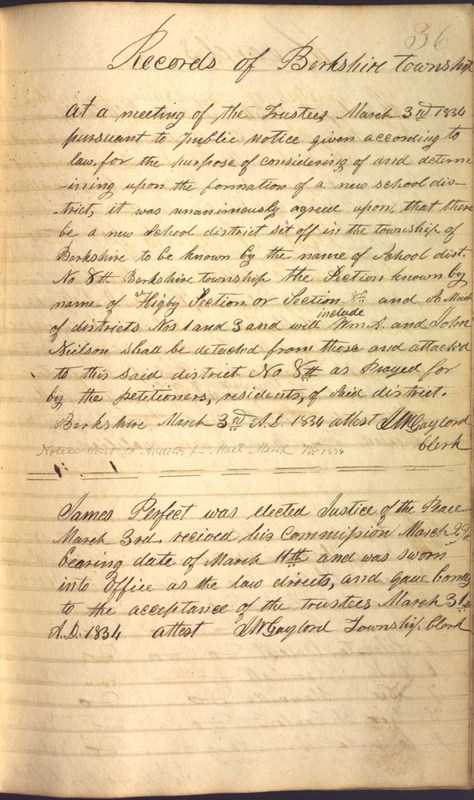 36
Records of Berkshire township
At a meeting of the Trustees March 3rd 1834
pursuant to public notice given according to
law, for the purpose of considering of and determ
-ining upon the formation of a new school dis-
-trict, it was unanimously agreed upon that there
be a new School district set off in the township of
Berkshire to be known by the name of School dist.
No 8th Berkshire township the Section known by
name of Higby Section or Section 8th and A. Much
of districts Nos 1 and 3 and will include Wm. A. and John
Neilson shall be detached from those and attach'd
to this said district No 8th as Prayed for
by the petitioners, residents, of Said district.
Berkshire March 3rd A.D. 1834 attest JW Gaylord
Clerk
Notice sent to Auditor March 7th 1834
James Perfect was elected Justice of the Peace
March 3rd recived his Commission March
bearing date of March 11th and was sworn
into Office as the law directs, and gave bonds
to the acceptance of the trustees March 31
A.D. 1834 attest JW Gaylord Township Clerk